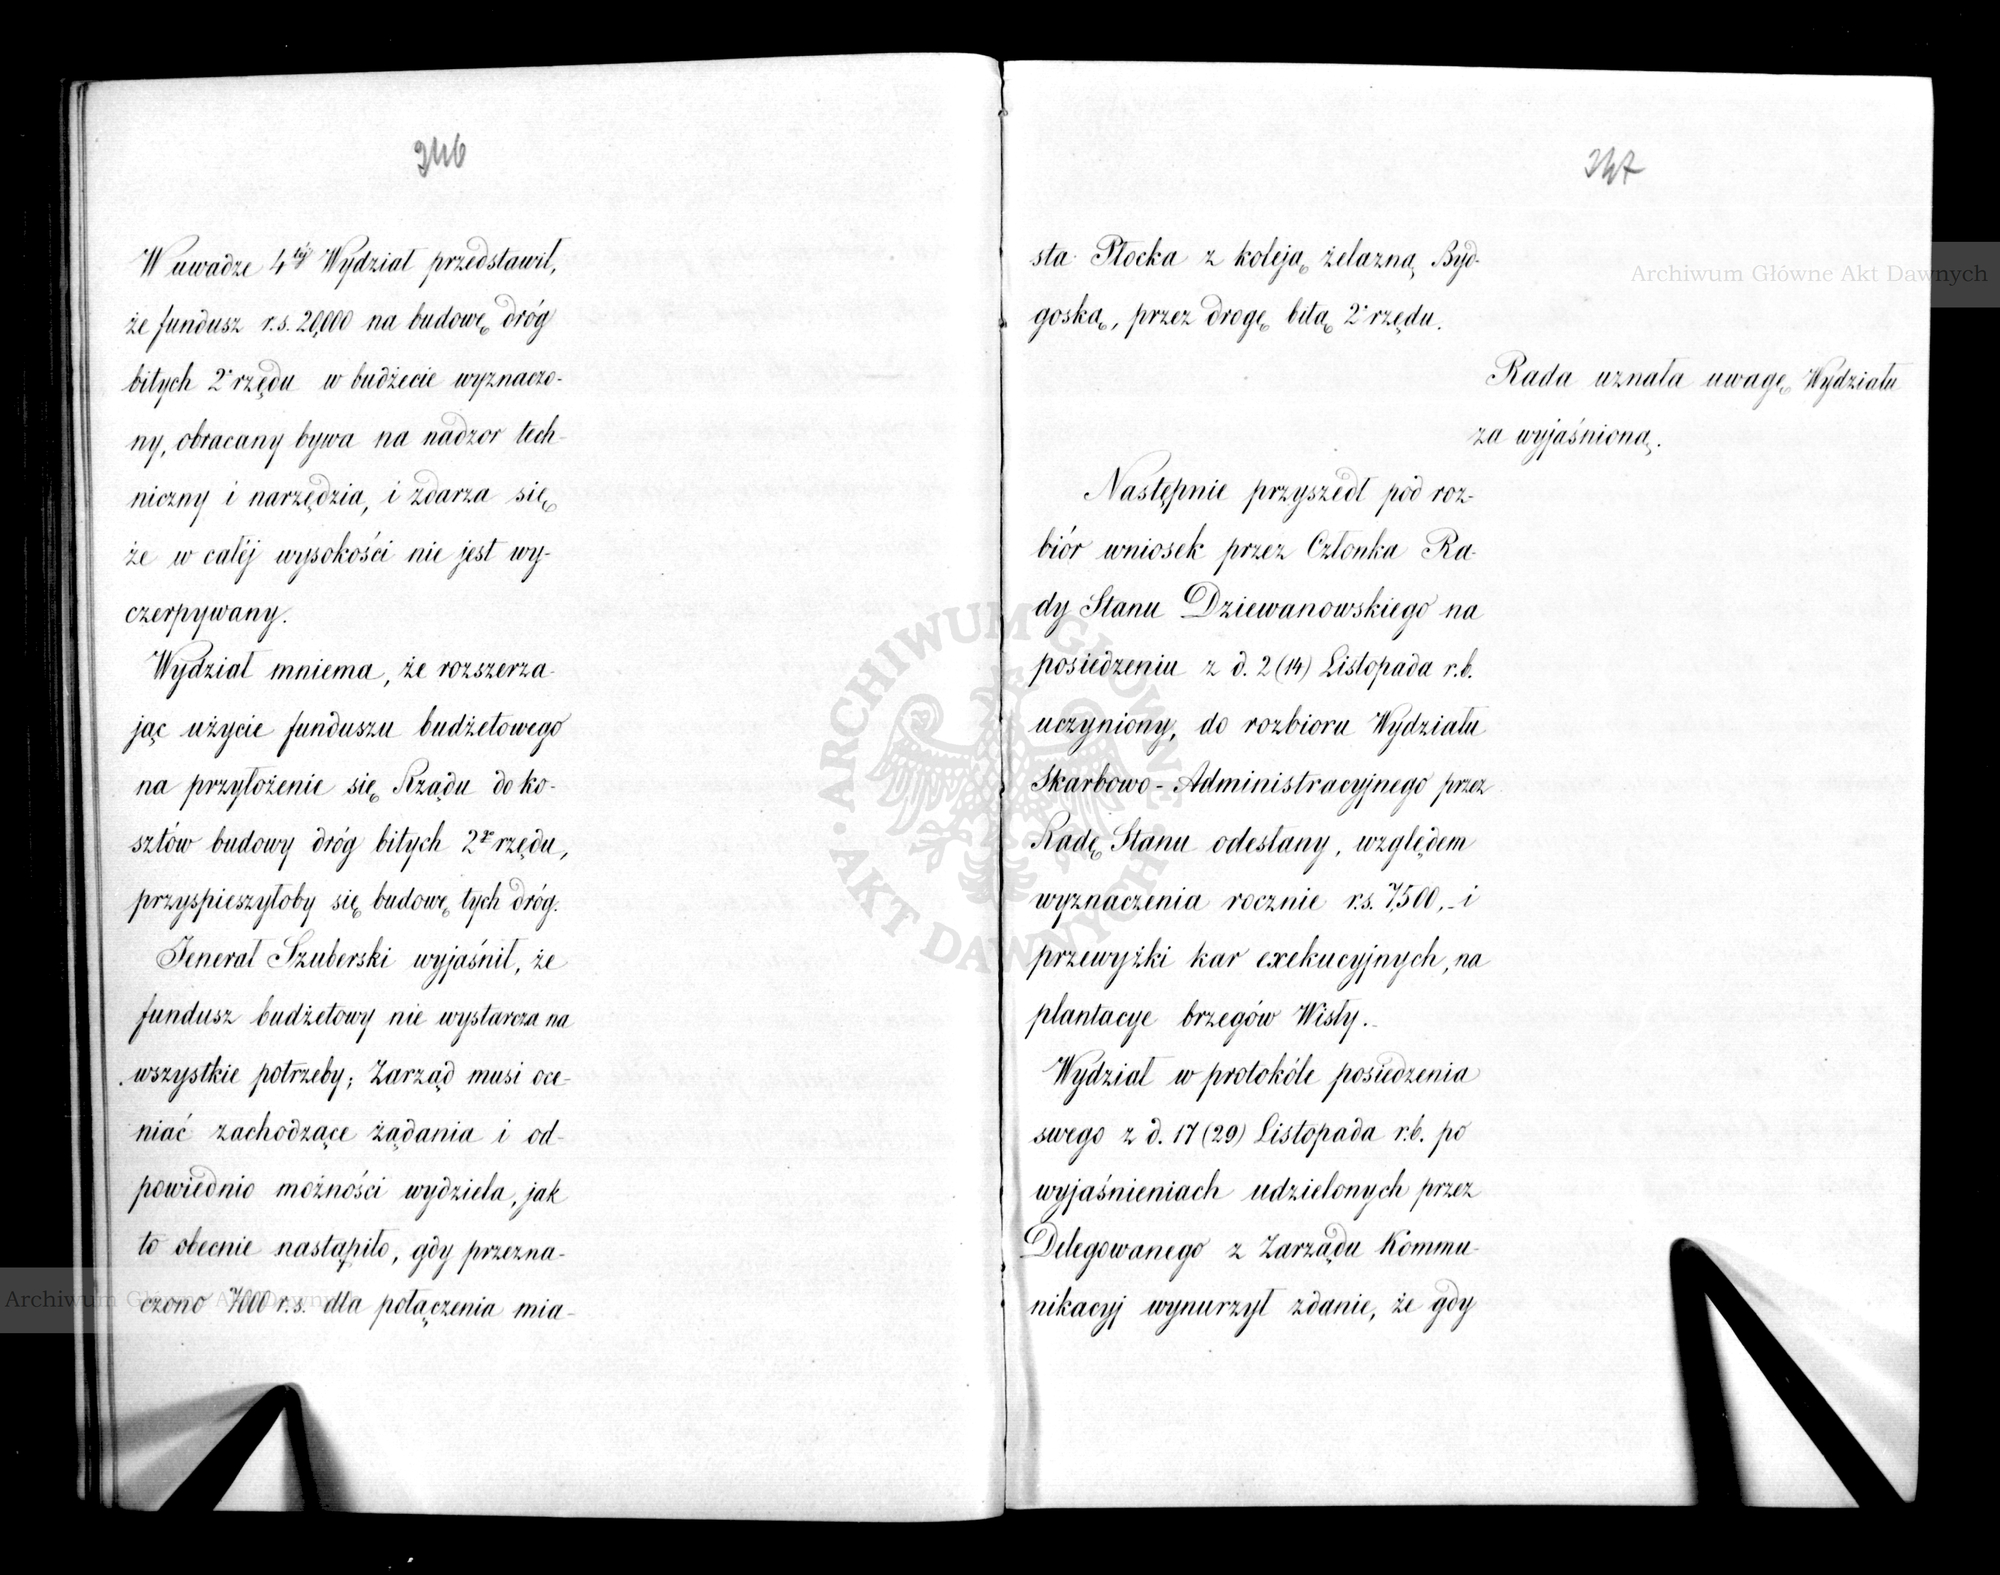 246
W uwadze 4téj Wydział przedstawił,
że fundusz r.s. 20,000 na budowę dróg
bitych 2° rzędu w budżecie wyznaczo-
ny, obracany bywa na nadzor tech-
niczny i narzędzia, i zdarza się
że w całéj wysokości nie jest wy-
czerpywany.
Wydział mniema, że rozszerza-
jąc użycie funduszu budżetowego
na przyłożenie się Rządu do ko-
sztów budowy dróg bitych 2go rzędu,
przyspieszyłoby się budowę tych dróg.
Jenerał Szuberski wyjaśnił, że
fundusz budżetowy nie wystarcza na
wszystkie potrzeby; Zarząd musi oce-
niać zachodzące żądania i od-
powiednio możności wydziela, jak
to obecnie nastąpiło, gdy przezna-
czono 7000 r.s. dla połączenia mia-
247
sta Płocka z koleją żelazną Byd-
goską, przez drogę bitą 2° rzędu.
Rada uznała uwagę Wydziału
za wyjaśnioną.
Następnie przyszedł pod roz-
biór wniosek przez Członka Ra-
dy Stanu Dziewanowskiego na
posiedzeniu z d. 2 (14) Listopada r.b.
uczyniony, do rozbioru Wydziału
Skarbowo-Administracyjnego przez
Radę Stanu odesłany, względem
wyznaczenia rocznie r.s. 7,500,- i
przewyżki kar exekucyjnych, na
plantacye brzegów Wisły.-
Wydział w protokóle posiedzenia
swego z d. 17 (29) Listopada r.b. po
wyjaśnieniach udzielonych przez
Delegowanego z Zarządu Kommu-
nikacyj wynurzył zdanie, że gdy
Archiwum Główne Akt Dawnych
Archiwum Główne Akt Dawnych
ARCHIWUM GŁÓWNE · AKT DAWNYCH ·